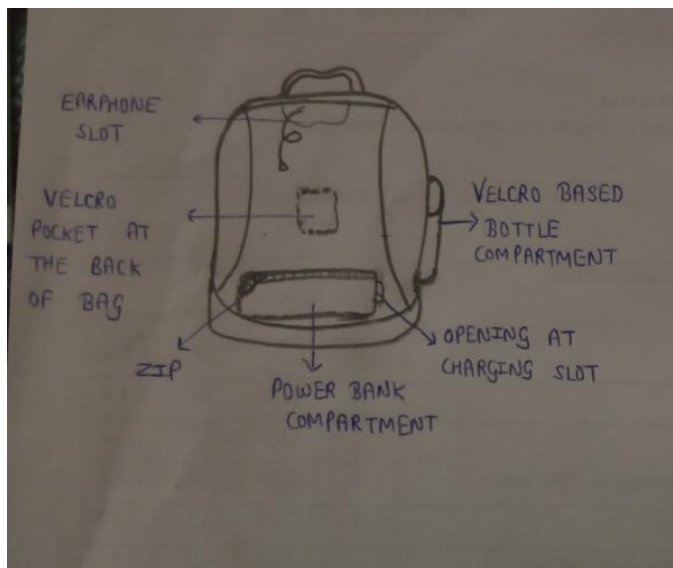 EARPHONE
SLOT
VELCRO
POCKET AT
THE BACK
OF BAG
VELCRO BASED
BOTTLE
COMPARTMENT
ZIP
POWER BANK
COMPARTMENT
OPENING AT
CHARGING SLOT